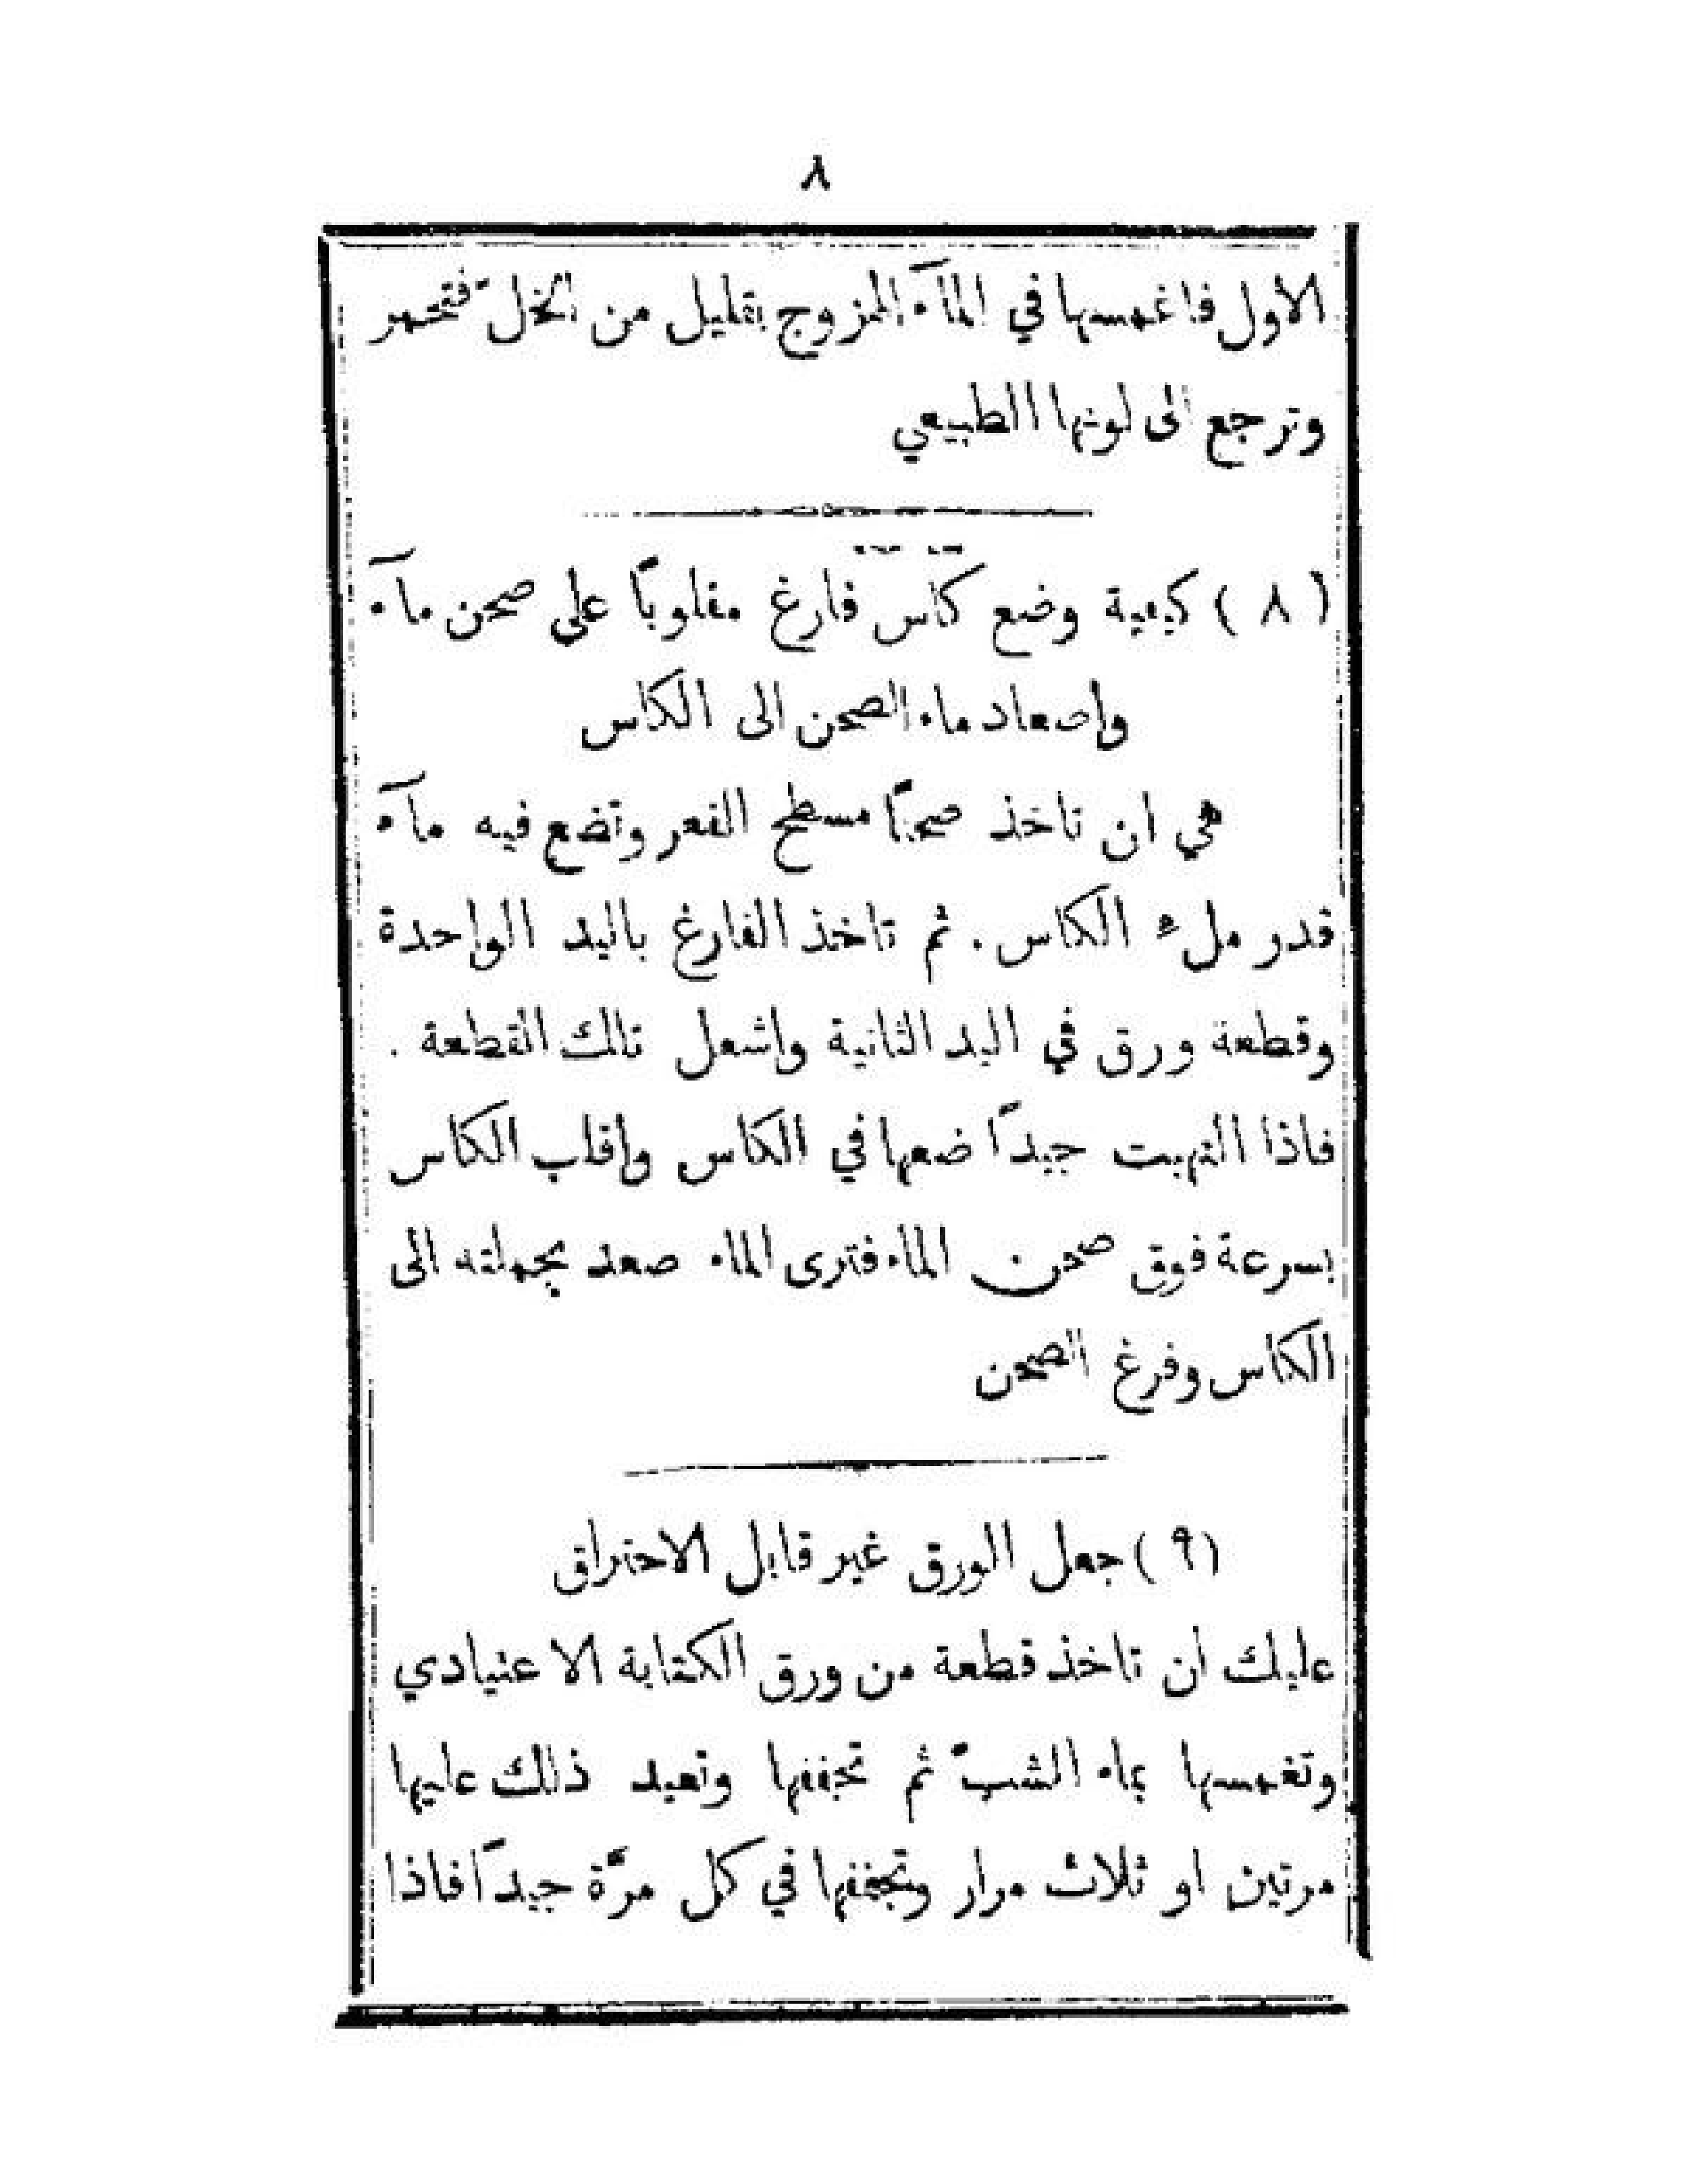 ٨
الاول فاغمسها في المآء الممزوج بقليل من الخلّ فتحمر
وترجع الى لونها الطبيعي
( ٨ ) كيفية وضع كاس فارغ مقلوبًا على صحن مآء
واصعاد ماء الصحن الى الكاس
هي ان تاخذ صحنًا مسطح القعر وتضع فيه مآء
قدر ملء الكاس . ثم تاخذ الفارغ باليد الواحدة
وقطعة ورق في اليد الثانية واشعل تلك القطعة .
فاذا التهبت جيدًا ضعها في الكاس واقلب الكاس
بسرعة فوق صحن الماء فترى الماء صعد بجملته الى
الكاس وفرغ الصحن
( ٩ ) جعل الورق غير قابل الاحتراق
عليك ان تاخذ قطعة من ورق الكتابة الاعتيادي
وتغمسها بماء الشبّ ثم تجففها وتعيد ذلك عليها
مرتين او ثلاث مرار وتجففها في كل مرّة جيدًا فاذا